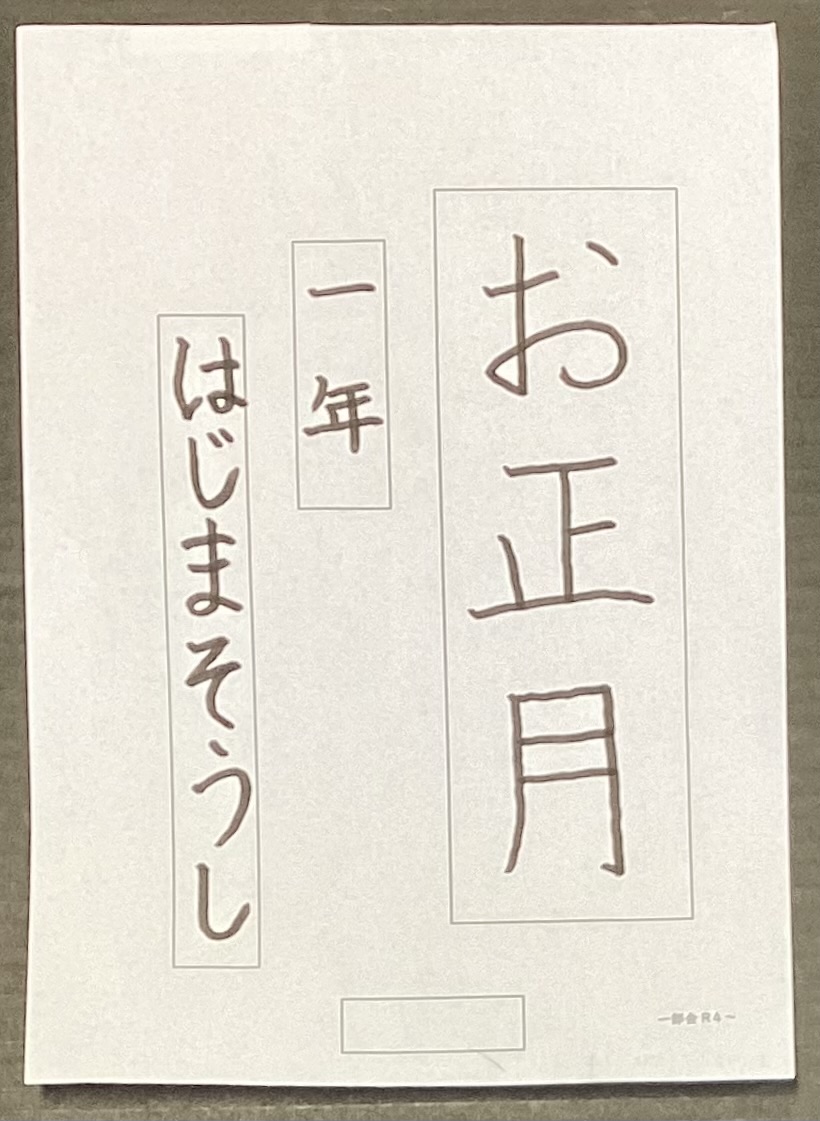 お正月
一年
はじまそうし
一部会R4～